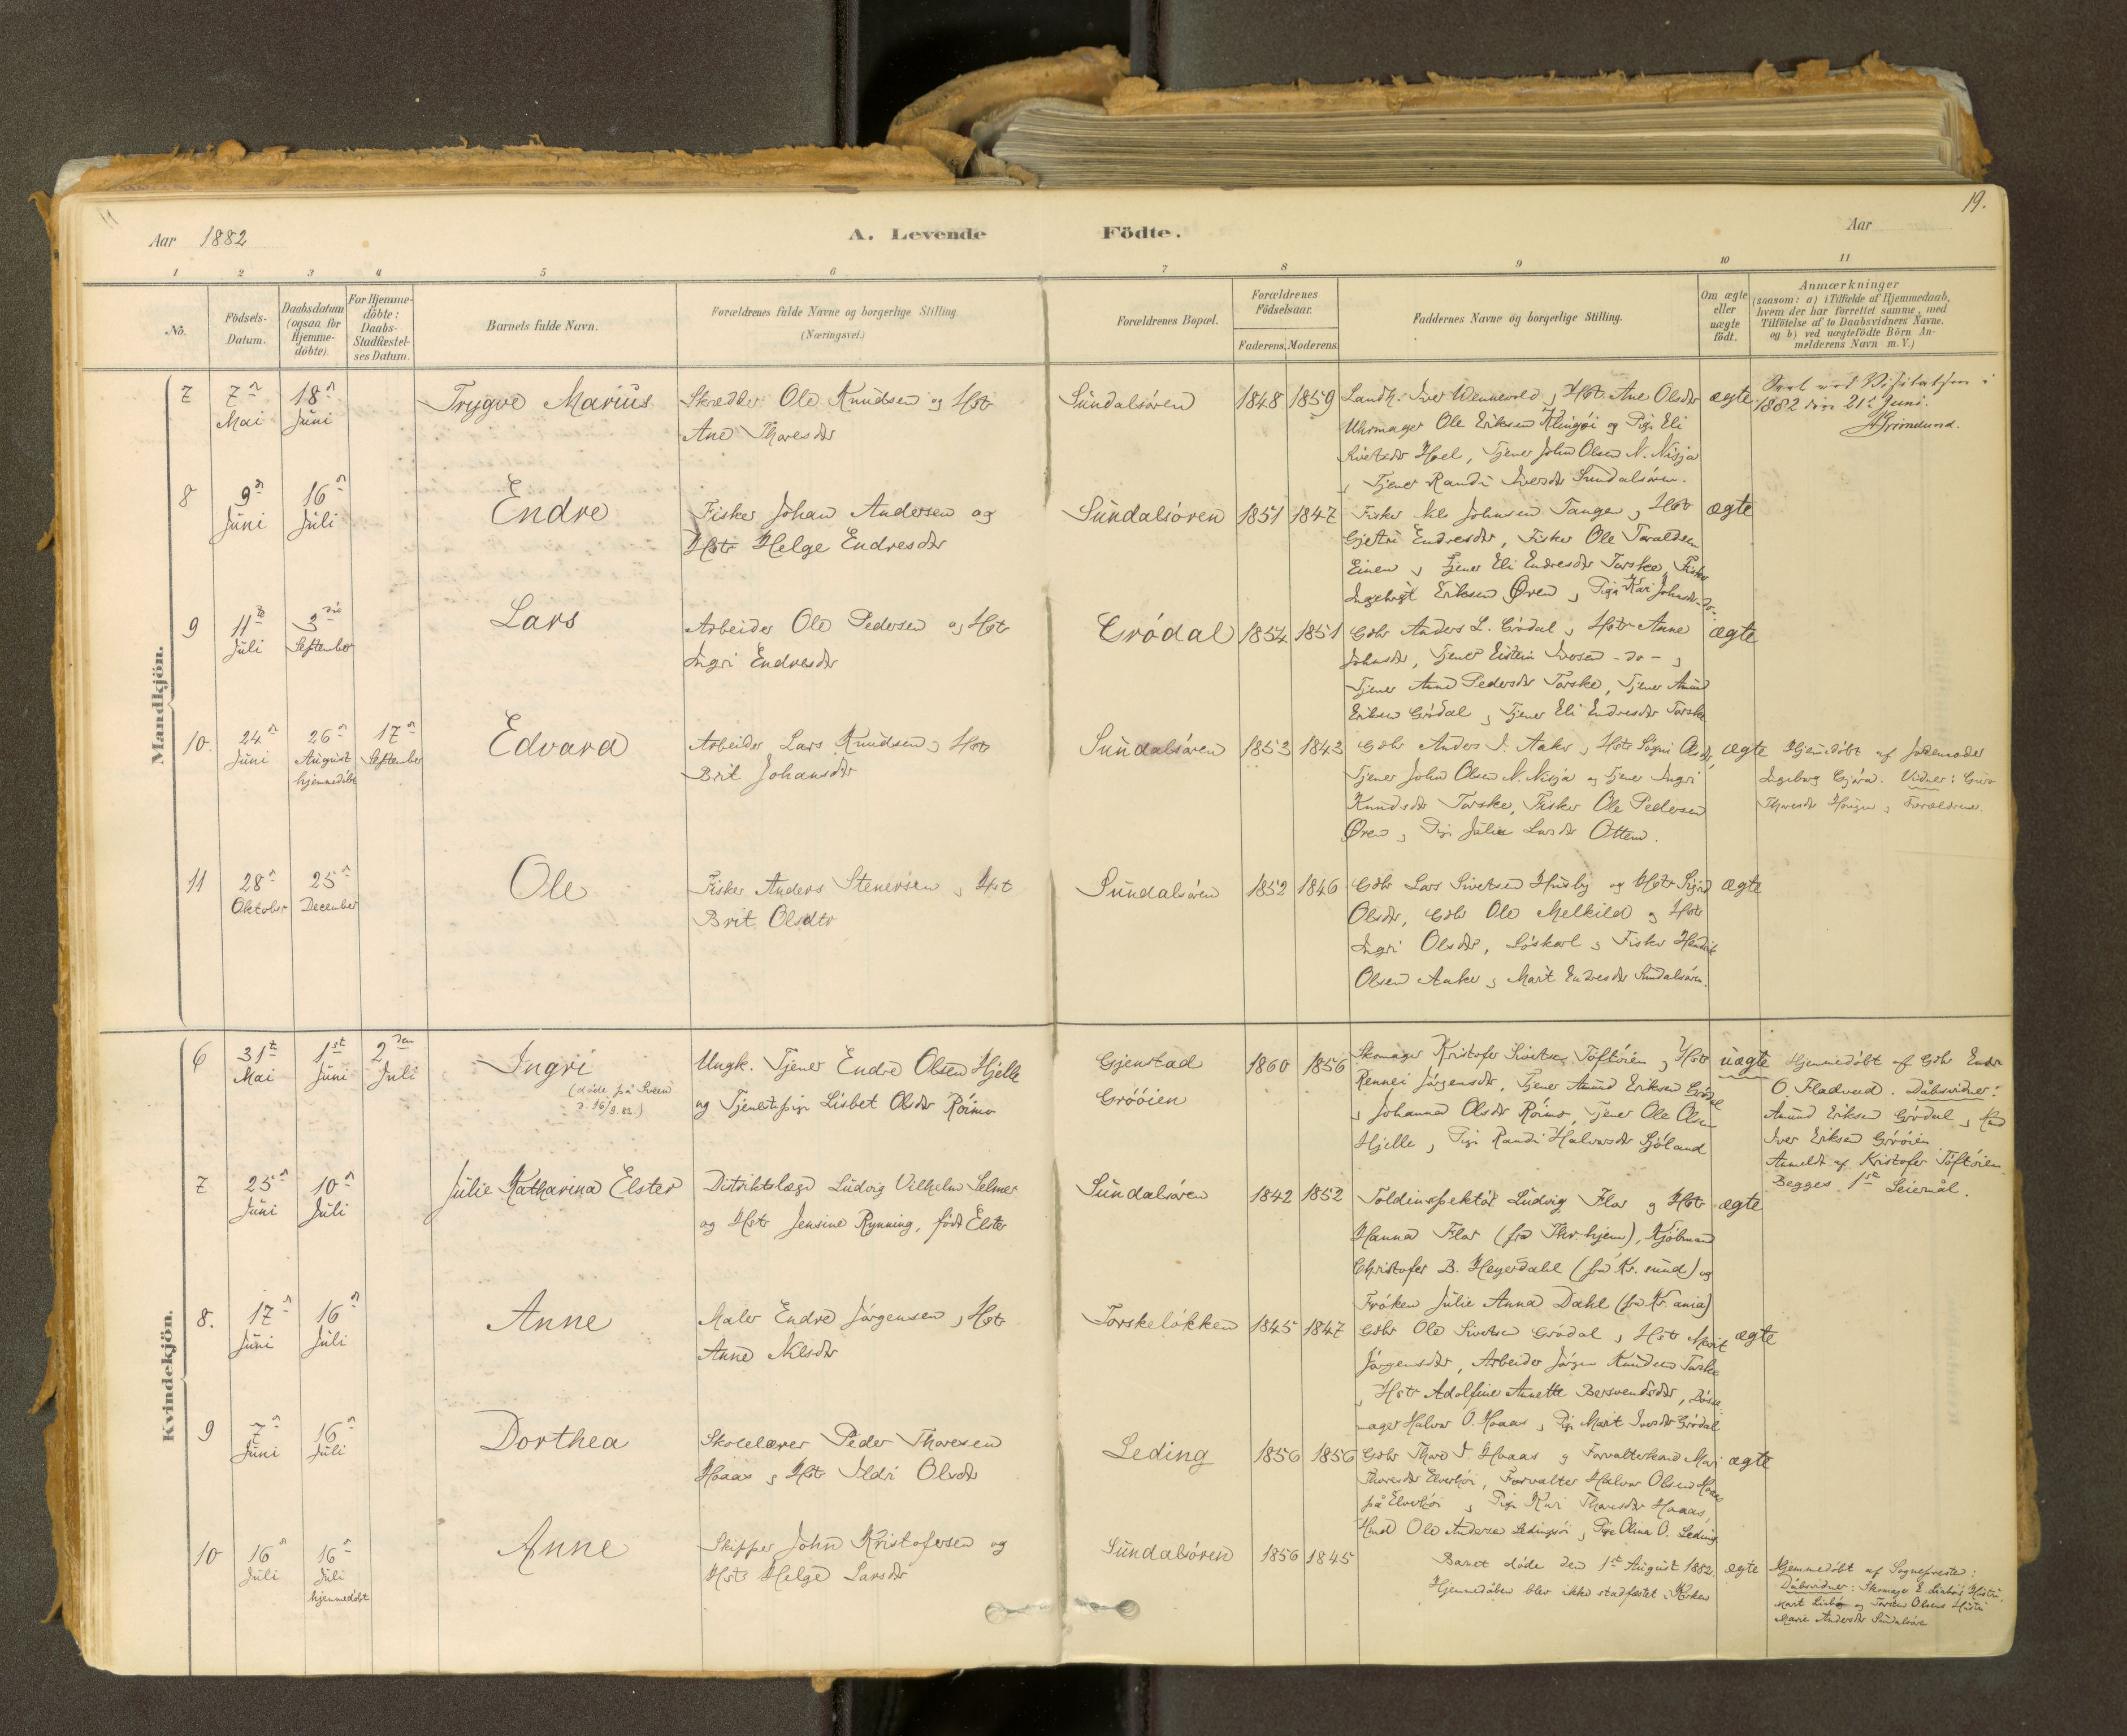 19.
Aar 1882
A. Levende Födte.
Aar
1 2 3 4 5 6 7 8 9 10 11
No.
Födsels-
Datum.
Daabsdatum
(ogsaa for
Hjemme-
döbte)
For Hjemme-
döbte:
Daabs-
Stadfæstel-
ses Datum.
Barnets fulde Navn.
Forældrenes fulde Navne og borgerlige Stilling.
(Næringsvei.)
Forældrenes Bopæl.
Forældrenes
Födselsaar.
Faderens. Moderens.
Faddernes Navne og borgerlige Stilling.
Om ægte
eller
uægte
födt.
Anmærkninger
(saasom: a) i Tilfælde af Hjemmedaab,
hvem der har forrettet samme, med
Tilföielse af to Daabsvidners Navne,
og b) ved uægtefödte Börn An-
melderens Navn m. V.)
Mandkjön.
7
7n
Mai
18n
Juni
Trygve Marius
Skrædder Ole Knudsen og Hstr
Ane Thoresdtr
Sundalsören
1848 1859
Landh. Iver Wennevold, Hstr. Ane Olsdtr
Uhrmager Ole Eriksen Klingöi og Pige Eli
Sivertsdtr Hoel, Tjener John Olsen N. Nisja
, Tjener Randi Iversdtr Sundalsören.
ægte
1882 den 21de Juni.
Grimelund.
8
9n
Juni
16n
Juli
Endre
Fisker Johan Andersen og
Hstr Helge Endresdtr
Sundalsören
1851 1847
Fisker Johnsen Tange, Hstr
Endresdtr, Fisker Ole Taraldsen
Einen, Tjener Eli Endresdtr Torske, Fisker
Ingebrigt Eriksen Øren, Pige Kari Johnsdtr -do-
ægte
9
11te
Juli
3die
September
Lars
Arbeider Ole Pedersen og Hstr
Ingri Endresdtr
Grödal
1854 1851
Gdbr Anders L. Grödal, Hstr Anne
Johnsdtr, Tjener Eistein Iversen -do-,
Tjener Anne Pedersdtr Torske, Tjener Amund
Eriksen Grödal, Tjener Eli Endresdtr Torske
ægte
10.
24n
Juni
26n
August
hjemmedöbt
17n
September
Edvard
Arbeider Lars Knudsen, Hstr
Brit Johansdtr
Sundalsören
1853 1843
Gdbr Anders I. Aaker, Hstr Sögni Olsdtr,
Tjener John Olsen N. Nisja og Tjener Ingri
Knudsdtr Torske, Fisker Ole Pedersen
Øren, Pige Julie Larsdtr Ottem.
ægte
Hjemmedöbt af Jordemoder
Ingeborg Gjöra. Vidner: Guro
Thoresdtr Hougen, Forældrene.
11
28n
Oktober
25n
December
Ole
Fisker Anders Stenersen, Hstr
Brit Olsdtr
Sundalsören
1852 1846
Gdbr Lars Sivertsen Husby og Hstr Sigrid
Olsdtr, Gdbr Ole Melkild og Hstr
Ingri Olsdtr, Löskarl, Fisker Hendrik
Olsen Aaker, Marit Endresdtr Sundalsören.
ægte
Kvindekjön.
6
31te
Mai
1ste
Juni
2den
Juli
Ingri
(döde på Sveen
d. 16/9.82.)
Ungk. Tjener Endre Olsen Hjelle
og Tjenestepige Lisbet Olsdtr Röimo
Gjenstad
Gröóien
1860 1856
Skomager Kristofer Sivertsen Toftöien, Hstr
Rennei Jörgensdtr, Tjener Amund Eriksen Grödal
, Johanna Olsdtr Röimo, Tjener Ole Olsen
Hjelle, Pige Randi Halvorsdtr Sjöland
uægte
Hjemmedöbt af Gdbr Endre
O. Fladvad. Dåbsvidner:
Amund Eriksen Grödal,
Iver Eriksen Gröóien
Anmeldt af Kristofer Toftöien.
Begges 1ste Leiermål.
7
25n
Juni
10n
Juli
Julie Katharina Elster
Distriktslæge Ludvig Vilhelm Selmer
og Hstr Jensine Rynning, född Elster
Sundalsören
1842 1852
Toldinspektör Ludvig Flor og Hstr
Hanna Flor (fra Thr.hjem), Kjöbmand
Christofer B. Heyerdahl (fra Kr.sund) og
Fröken Julie Anna Dahl (fra Kr.ania)
ægte
8.
17n
Juni
16n
Juli
Anne
Maler Endre Jörgensen, Hstr
Anne Nilsdtr
Torskelökken
1845 1847
Gdbr Ole Sivertsen Grödal, Hstr Marit
Jörgensdtr, Arbeider Jörgen Knudsen Torske
, Hstr Adolfine Annette Bersvendsdtr, Bösse-
mager Halvor O. Hoaas, Pige Marit Iversdtr Grödal
ægte
9
7n
Juni
16n
Juli
Dorthea
Skolelærer Peder Thoresen
Hoaas, Hstr Ildri Olsdtr
Leding
1856 1856
Gdbr Thore I. Hoaas og Forvalterkone Mari
Thoresdtr Elverhöi, Forvalter Halvor Olsen Hoaas
på Elverhöi, Pige Kari Thoresdtr Hoaas,
Hmd Ole Andersen Ledingsöi, Pige Olina O. Leding
ægte
10
16n
Juli
16n
Juli
hjemmedöbt
Anne
Skipper John Kristofersen og
Hstr Helge Larsdtr
Sundalsören
1856 1845
Barnet döde den 1ste August 1882.
Hjemmedåben blev ikke stadfæstet i Kirken
ægte
Hjemmedöbt af Sognepresten:
Dåbsvidner: Skomager E. Hustru
Marit og Torsten Olsens Hustru
Marie Andersdtr Sundalsöre